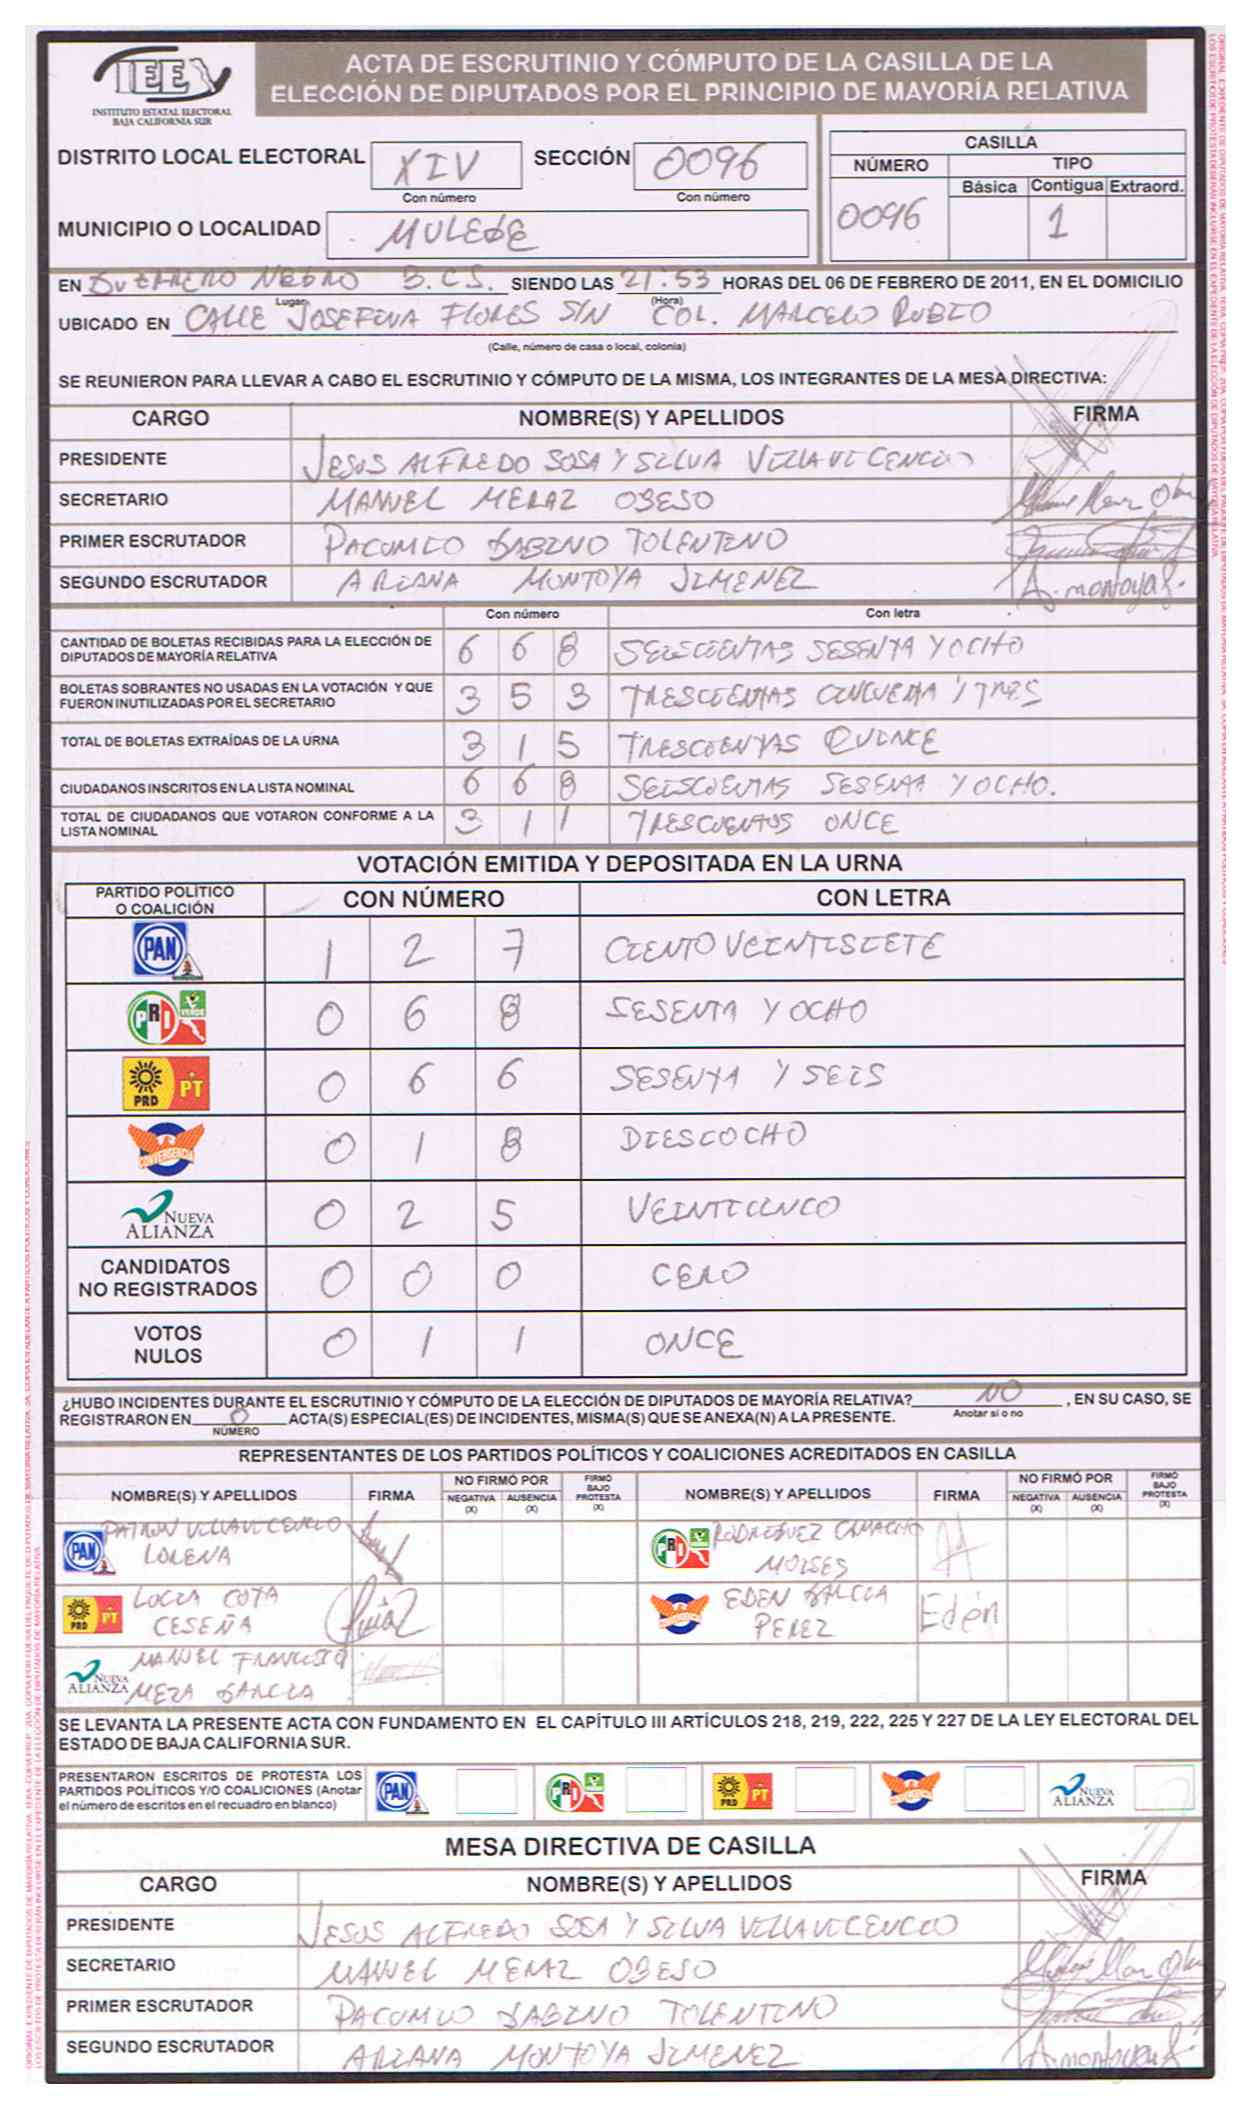 IEE
INSTITUTO ESTATAL ELECTORAL
BAJA CALIFORNIA SUR
ACTA DE ESCRUTINIO Y CÓMPUTO DE LA CASILLA DE LA
ELECCIÓN DE DIPUTADOS POR EL PRINCIPIO DE MAYORÍA RELATIVA
DISTRITO LOCAL ELECTORAL XIV SECCIÓN 0096
Con número Con número
MUNICIPIO O LOCALIDAD MULEGE
CASILLA
NÚMERO TIPO
Básica Contigua Extraord.
0096 1
EN GUERRERO NEGRO B.C.S. SIENDO LAS 21:53 HORAS DEL 06 DE FEBRERO DE 2011, EN EL DOMICILIO
Lugar (Hora)
UBICADO EN CALLE JOSEFINA FLORES S/N COL. MARCELO RUBIO
(Calle, número de casa o local, colonia)
SE REUNIERON PARA LLEVAR A CABO EL ESCRUTINIO Y CÓMPUTO DE LA MISMA, LOS INTEGRANTES DE LA MESA DIRECTIVA:
CARGO NOMBRE(S) Y APELLIDOS FIRMA
PRESIDENTE JESUS ALFREDO SOSA Y SILVA VILLAVICENCIO
SECRETARIO MANUEL MERAZ OBESO
PRIMER ESCRUTADOR PACOMIO SABINO TOLENTINO
SEGUNDO ESCRUTADOR ARIANA MONTOYA JIMENEZ A. montoya J.
Con número Con letra
CANTIDAD DE BOLETAS RECIBIDAS PARA LA ELECCIÓN DE
DIPUTADOS DE MAYORÍA RELATIVA 6 6 8 SEISCIENTAS SESENTA Y OCHO
BOLETAS SOBRANTES NO USADAS EN LA VOTACIÓN Y QUE
FUERON INUTILIZADAS POR EL SECRETARIO 3 5 3 TRESCIENTAS CINCUENTA Y TRES
TOTAL DE BOLETAS EXTRAÍDAS DE LA URNA 3 1 5 TRESCIENTAS QUINCE
CIUDADANOS INSCRITOS EN LA LISTA NOMINAL 6 6 8 SEISCIENTAS SESENTA Y OCHO.
TOTAL DE CIUDADANOS QUE VOTARON CONFORME A LA
LISTA NOMINAL 3 1 1 TRESCIENTOS ONCE
VOTACIÓN EMITIDA Y DEPOSITADA EN LA URNA
PARTIDO POLÍTICO
O COALICIÓN CON NÚMERO CON LETRA
PAN 1 2 7 CIENTO VEINTISIETE
PRI VERDE 0 6 8 SESENTA Y OCHO
PRD PT 0 6 6 SESENTA Y SEIS
CONVERGENCIA 0 1 8 DIESCOCHO
NUEVA ALIANZA 0 2 5 VEINTICINCO
CANDIDATOS
NO REGISTRADOS 0 0 0 CERO
VOTOS
NULOS 0 1 1 ONCE
¿HUBO INCIDENTES DURANTE EL ESCRUTINIO Y CÓMPUTO DE LA ELECCIÓN DE DIPUTADOS DE MAYORÍA RELATIVA? NO , EN SU CASO, SE
Anotar sí o no
REGISTRARON EN 0 ACTA(S) ESPECIAL(ES) DE INCIDENTES, MISMA(S) QUE SE ANEXA(N) A LA PRESENTE.
NÚMERO
REPRESENTANTES DE LOS PARTIDOS POLÍTICOS Y COALICIONES ACREDITADOS EN CASILLA
NOMBRE(S) Y APELLIDOS FIRMA NO FIRMÓ POR NEGATIVA (X) AUSENCIA (X) FIRMÓ BAJO PROTESTA (X) NOMBRE(S) Y APELLIDOS FIRMA NO FIRMÓ POR NEGATIVA (X) AUSENCIA (X) FIRMÓ BAJO PROTESTA (X)
PAN PATRON VILLAVICENCIO LORENA
PRI RODRIGUEZ CAMACHO MOISES
PRD PT LUCIA COTA CESEÑA
CONVERGENCIA EDEN GARCIA PEREZ Edén
NUEVA ALIANZA MANUEL FRANCISCO MEZA GARCIA
SE LEVANTA LA PRESENTE ACTA CON FUNDAMENTO EN EL CAPÍTULO III ARTÍCULOS 218, 219, 222, 225 Y 227 DE LA LEY ELECTORAL DEL
ESTADO DE BAJA CALIFORNIA SUR.
PRESENTARON ESCRITOS DE PROTESTA LOS
PARTIDOS POLÍTICOS Y/O COALICIONES (Anotar
el número de escritos en el recuadro en blanco)
PAN PRI PRD PT CONVERGENCIA NUEVA ALIANZA
MESA DIRECTIVA DE CASILLA
CARGO NOMBRE(S) Y APELLIDOS FIRMA
PRESIDENTE JESUS ALFREDO SOSA Y SILVA VILLAVICENCIO
SECRETARIO MANUEL MERAZ OBESO
PRIMER ESCRUTADOR PACOMIO SABINO TOLENTINO
SEGUNDO ESCRUTADOR ARIANA MONTOYA JIMENEZ A. montoya J.